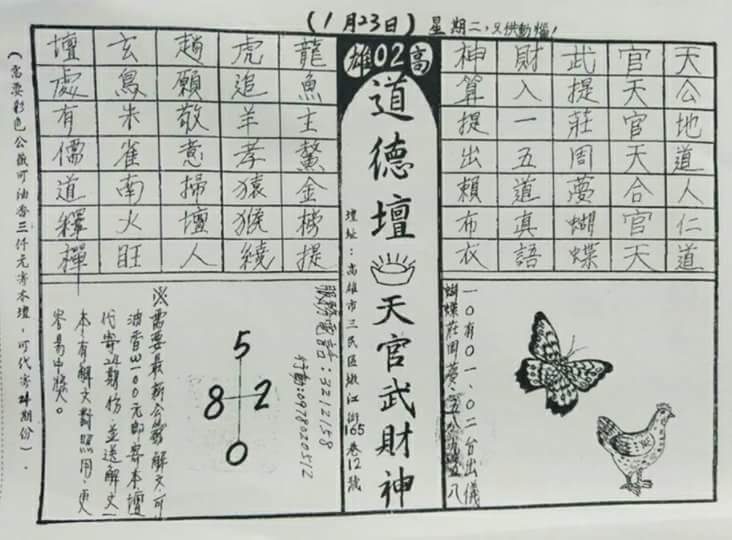 (1月23日)星期二,只供動腦!
雄02高
天公地道人仁道
官天官天合官天
武提莊周夢蝴蝶
財入一五道真語
神算提出賴布衣
道德壇
天官武財神
壇址:高雄市三民區嫩江街165巷12號
龍魚主鰲金榜提
虎追羊孝猿猴繞
趙願敬意掃壇人
玄鳥朱雀南火旺
壇處有儒道釋禪
一0有0一、0二台出儀
蝴蝶莊周夢
服務電話:3212158
行動:0978020512
5
8 2
0
※需要最新公籤解文,可
油香600元郵寄本壇
代寄22期份,並送解文一
本,有解文對照用,更
容易中獎。
(需要彩色公籤可油香三仟元寄本壇,可代寄24期份).